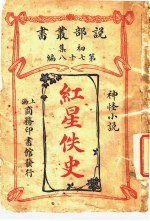 說部叢書
初集
第七十八編
神怪小說
紅星佚史
上海商務印書館發行